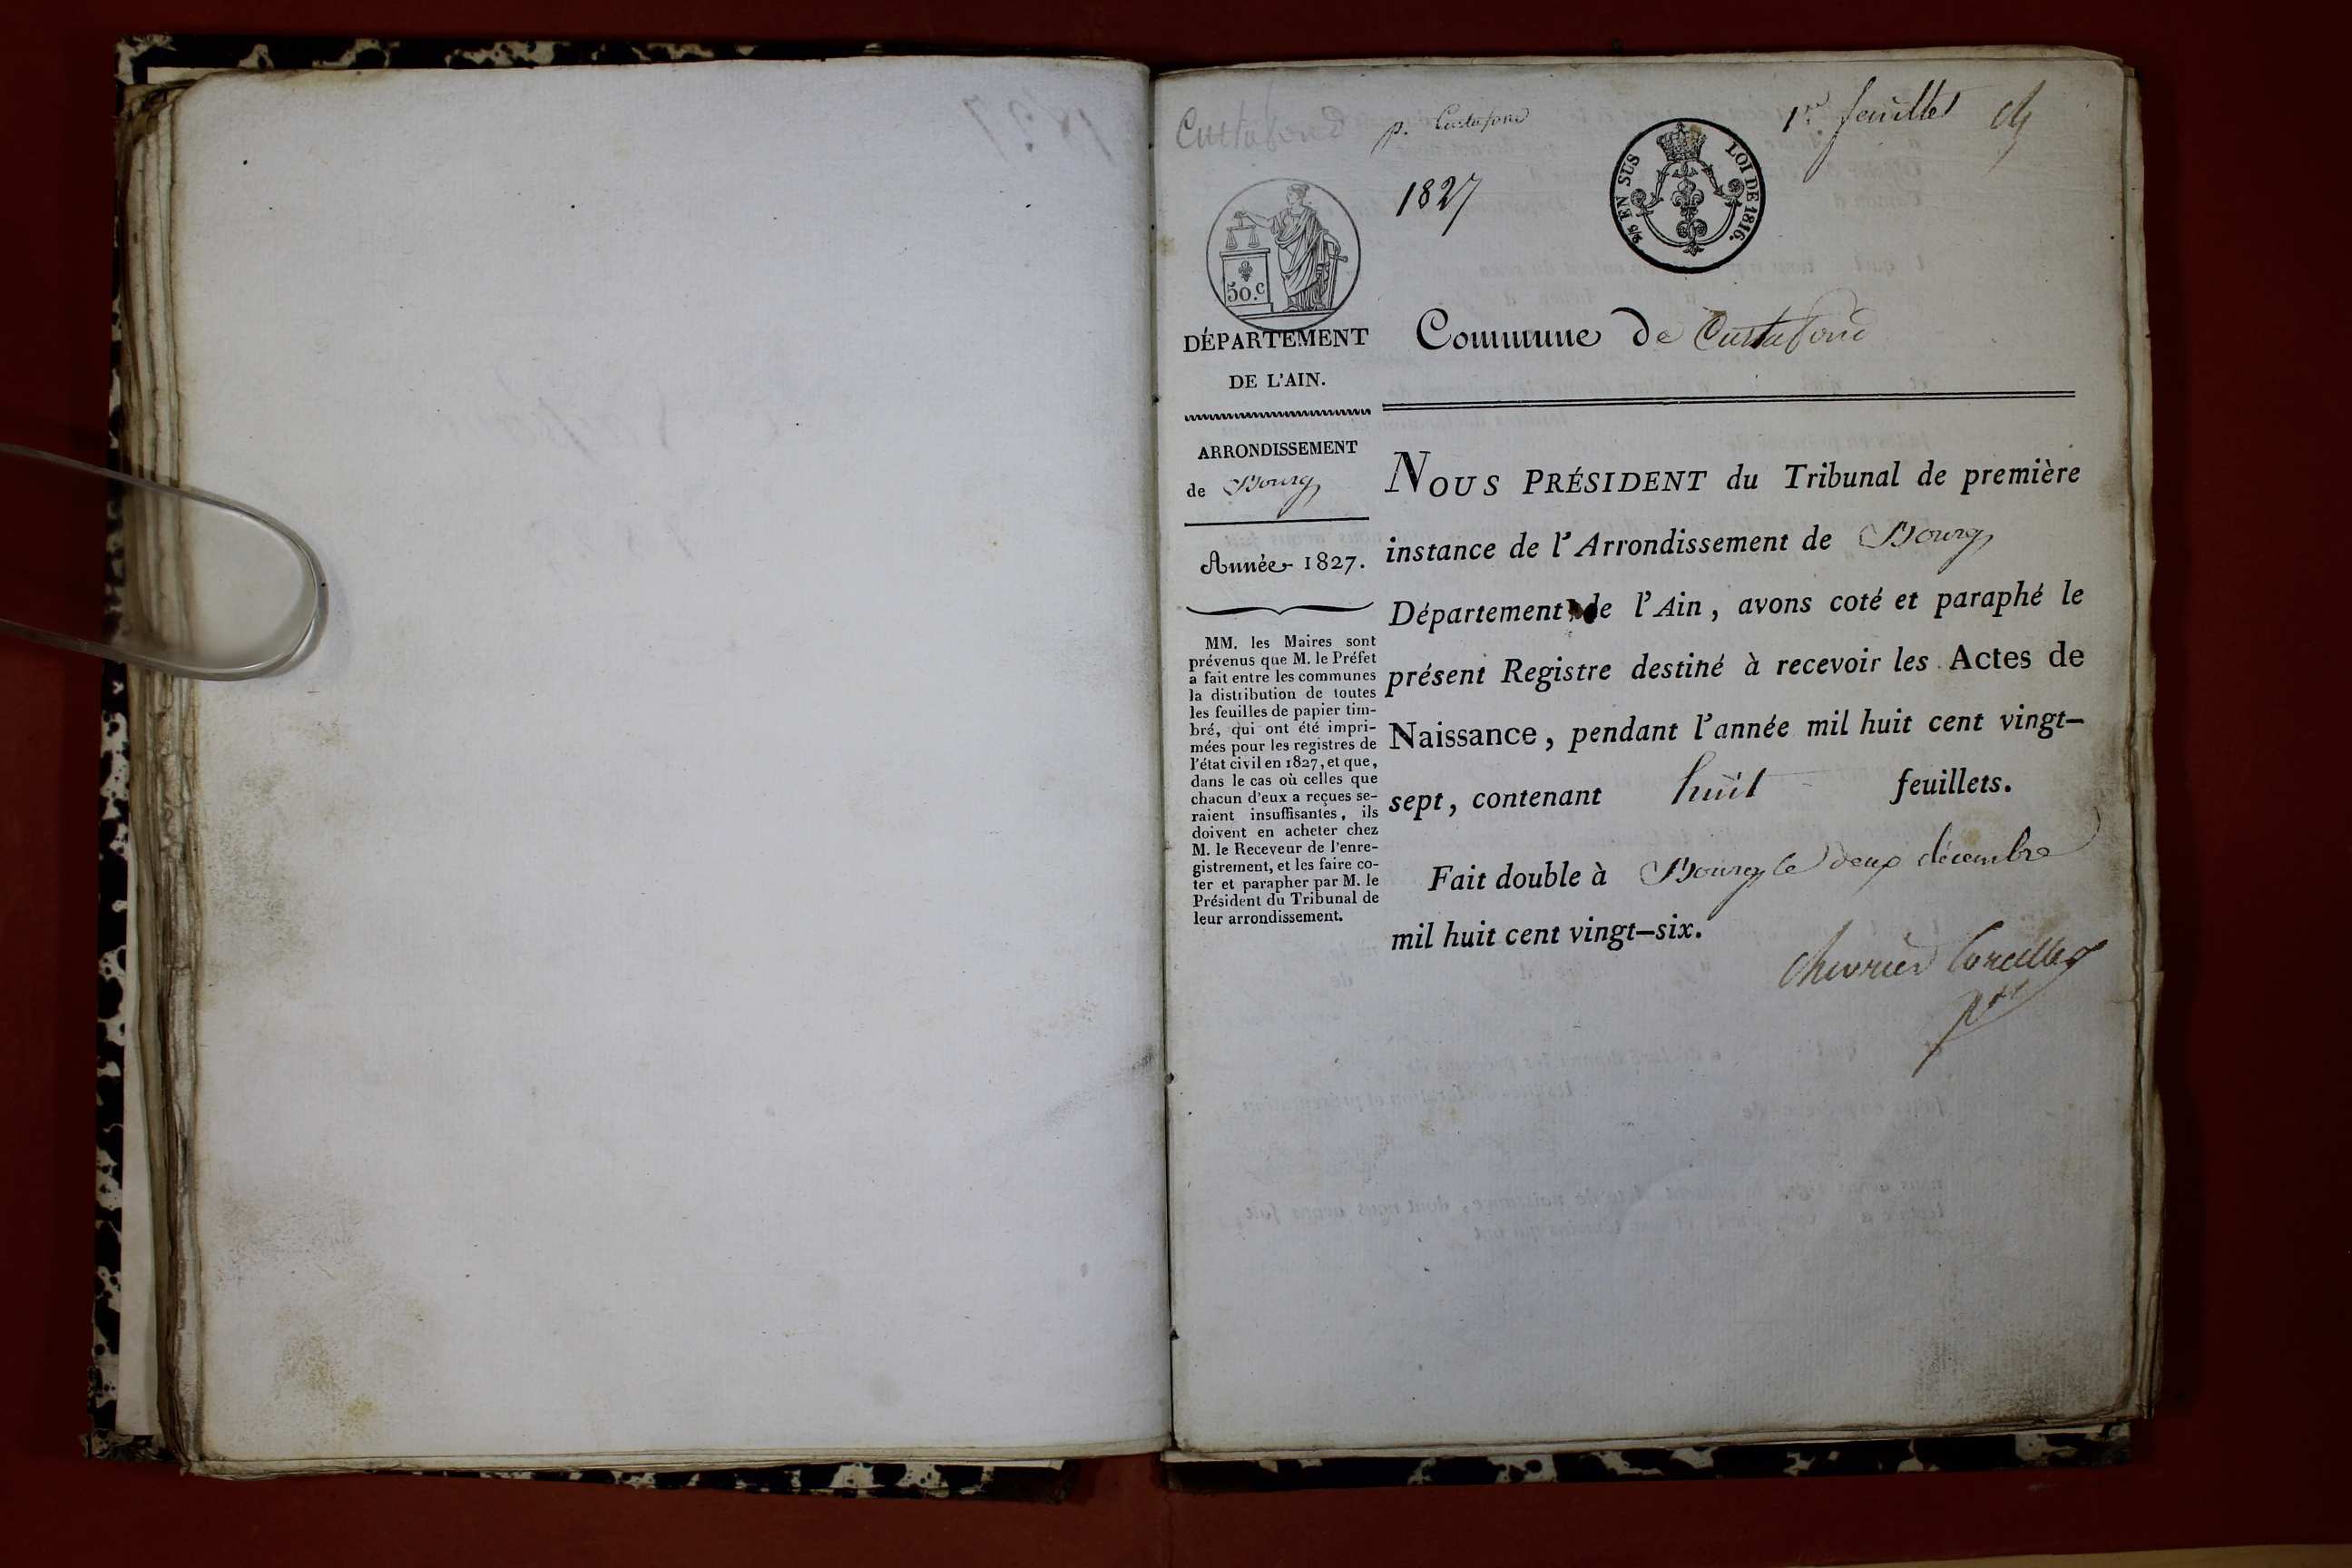 Curtafond
p. Curtafond
1er feuillet
1827
2/5 EN SUS
LOI DE 1816.
50.c
DÉPARTEMENT
DE L'AIN.
ARRONDISSEMENT
de Bourg
Année 1827.
MM. les Maires sont
prévenus que M. le Préfet
a fait entre les communes
la distribution de toutes
les feuilles de papier tim-
bré, qui ont été impri-
mées pour les registres de
l'état civil en 1827, et que,
dans le cas où celles que
chacun d'eux a reçues se-
raient insuffisantes, ils
doivent en acheter chez
M. le Receveur de l'enre-
gistrement, et les faire co-
ter et parapher par M. le
Président du Tribunal de
leur arrondissement.
Commune de Curtafond
NOUS PRÉSIDENT du Tribunal de première
instance de l'Arrondissement de Bourg
Département de l'Ain, avons coté et paraphé le
présent Registre destiné à recevoir les Actes de
Naissance, pendant l'année mil huit cent vingt-
sept, contenant huit feuillets.
Fait double à Bourg le deux décembre
mil huit cent vingt-six.
Chevrier Corcelles